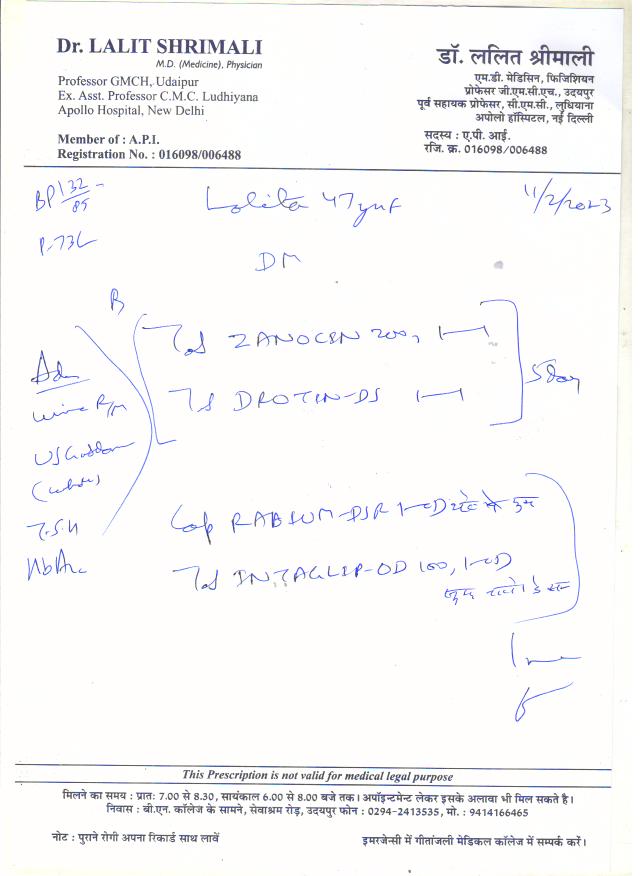 Dr. LALIT SHRIMALI
M.D. (Medicine), Physician
Professor GMCH, Udaipur
Ex. Asst. Professor C.M.C. Ludhiyana
Apollo Hospital, New Delhi
Member of : A.P.I.
Registration No. : 016098/006488
डॉ. ललित श्रीमाली
एम.डी. मेडिसिन, फिजिशियन
प्रोफेसर जी.एम.सी.एच., उदयपुर
पूर्व सहायक प्रोफेसर, सी.एम.सी., लुधियाना
अपोलो हॉस्पिटल, नई दिल्ली
सदस्य : ए.पी. आई.
रजि. क्र. 016098/006488
BP 132/85
Lolita 47yrf
11/2/2023
DM
ZANOCIN 200, 1—1
5 day
DROTIN-DS 1—1
Adv
Urine R/M
Cap RABIUM-DSR 1-OD
T.S.H
INTAGLIP-OD 100, 1-OD
HbA1c
This Prescription is not valid for medical legal purpose
मिलने का समय : प्रातः 7.00 से 8.30, सायंकाल 6.00 से 8.00 बजे तक। अपॉइन्टमेन्ट लेकर इसके अलावा भी मिल सकते है।
निवास : बी.एन. कॉलेज के सामने, सेवाश्रम रोड़, उदयपुर फोन : 0294-2413535, मो. : 9414166465
नोट : पुराने रोगी अपना रिकार्ड साथ लावें
इमरजेन्सी में गीतांजली मेडिकल कॉलेज में सम्पर्क करें।